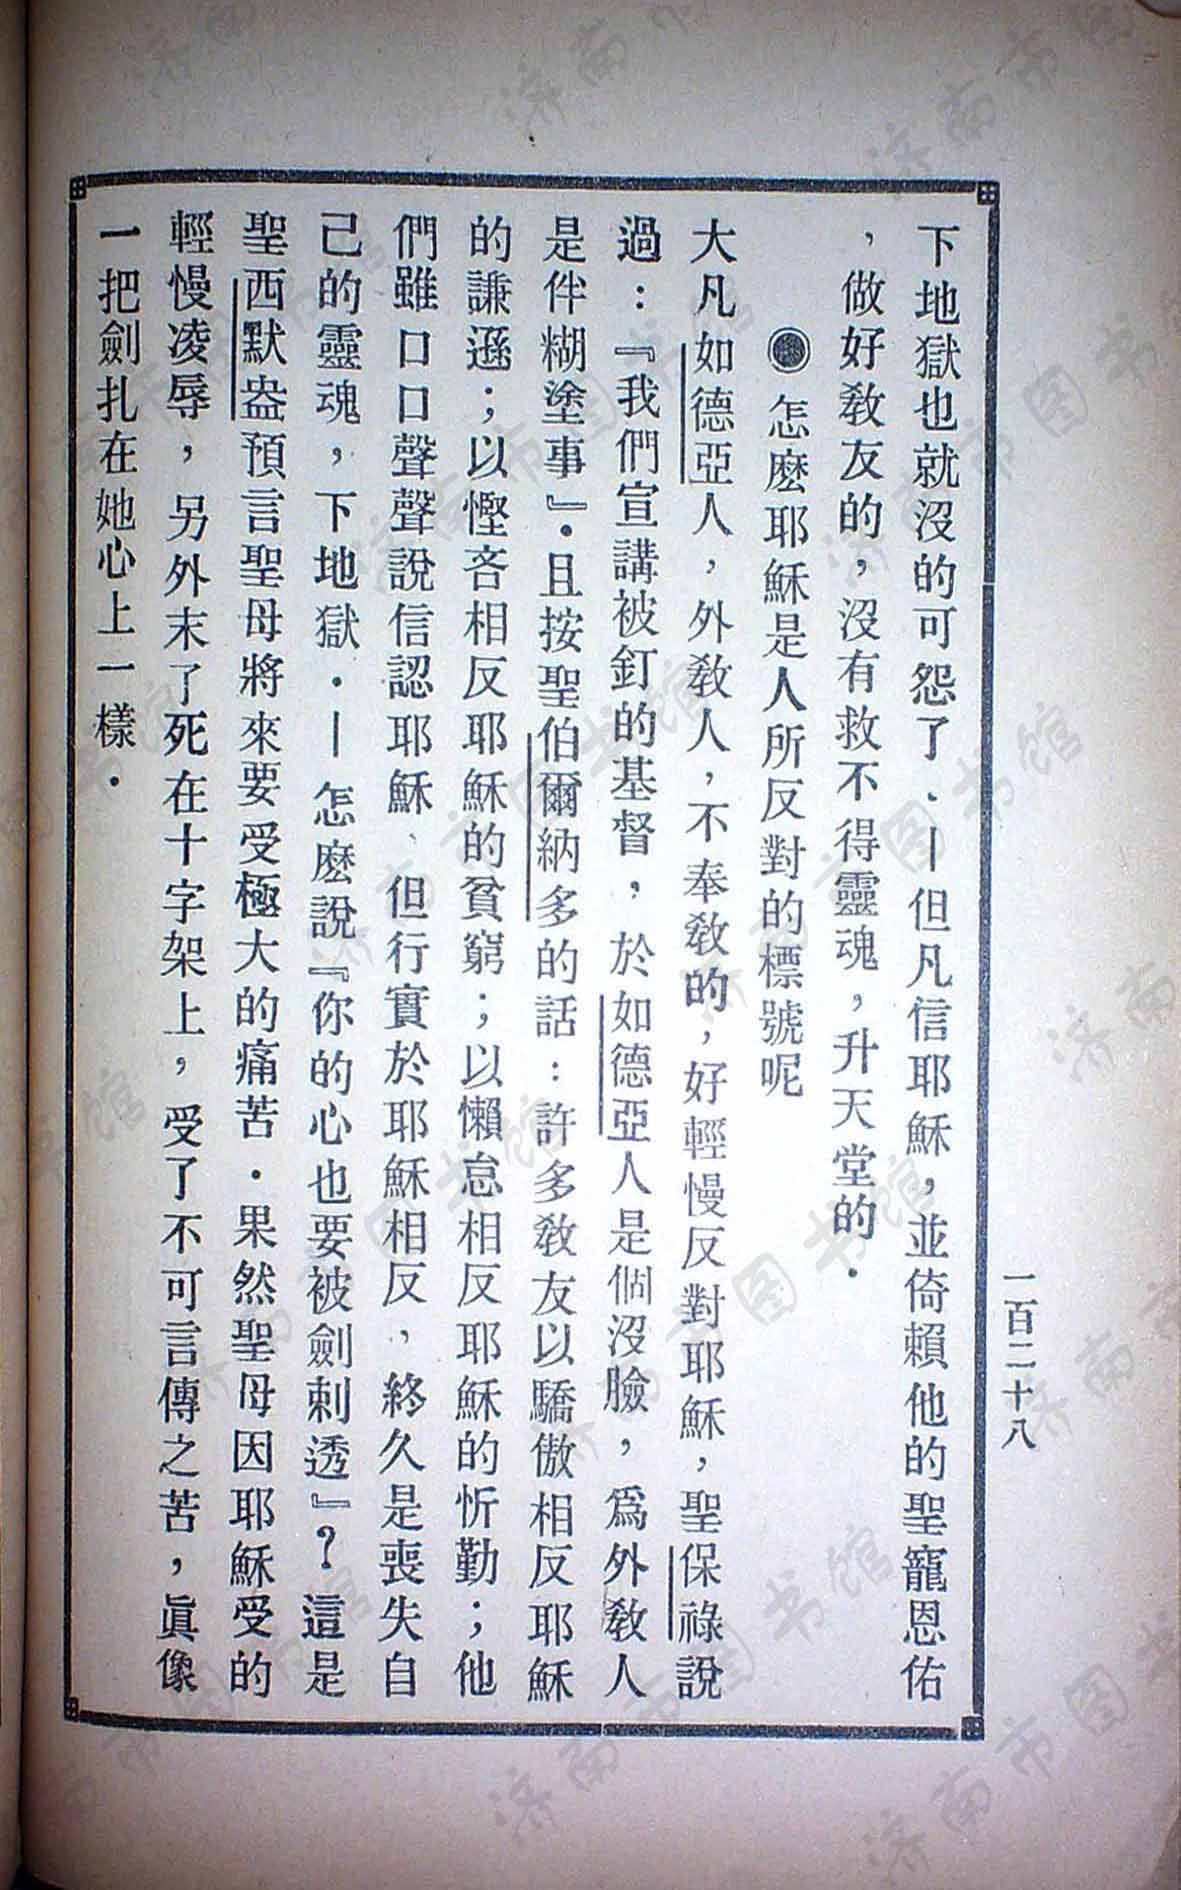 一百二十八
下地獄也就沒的可怨了．—但凡信耶穌，並倚賴他的聖寵恩佑
，做好敎友的，沒有救不得靈魂，升天堂的．
◉怎麼耶穌是人所反對的標號呢
大凡如德亞人，外敎人，不奉敎的，好輕慢反對耶穌，聖保祿說
過：『我們宣講被釘的基督，於如德亞人是個沒臉，爲外敎人
是件糊塗事』．且按聖伯爾納多的話：許多敎友以驕傲相反耶穌
的謙遜；以慳吝相反耶穌的貧窮；以懶怠相反耶穌的忻勤；他
們雖口口聲聲說信認耶穌、但行實於耶穌相反，終久是喪失自
己的靈魂，下地獄．—怎麼說『你的心也要被劍刺透』？這是
聖西默盎預言聖母將來要受極大的痛苦．果然聖母因耶穌受的
輕慢凌辱，另外末了死在十字架上，受了不可言傳之苦，眞像
一把劍扎在她心上一樣．
济南市图书馆